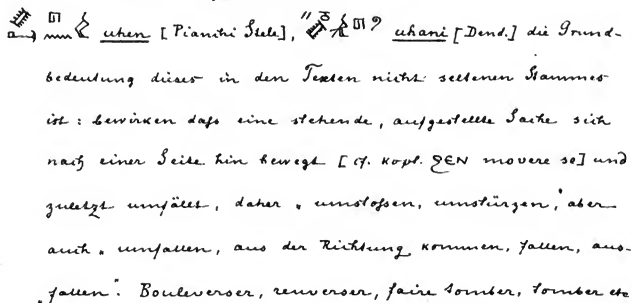 uhen [Pianchi Stele], uhani [Dend.] die Grund-
bedeutung dieses in den Texten nicht seltenen Stammes
ist: bewirken dass eine stehende, aufgestellte Sache sich
nach einer Seite hin bewegt [cf. kopt. ϩЄΝ movere se] und
zuletzt umfällt, daher „umstossen, umstürzen," aber
auch „umfallen, aus der Richtung kommen, fallen, aus-
fallen". Bouleverser, renverser, faire tomber, tomber etc